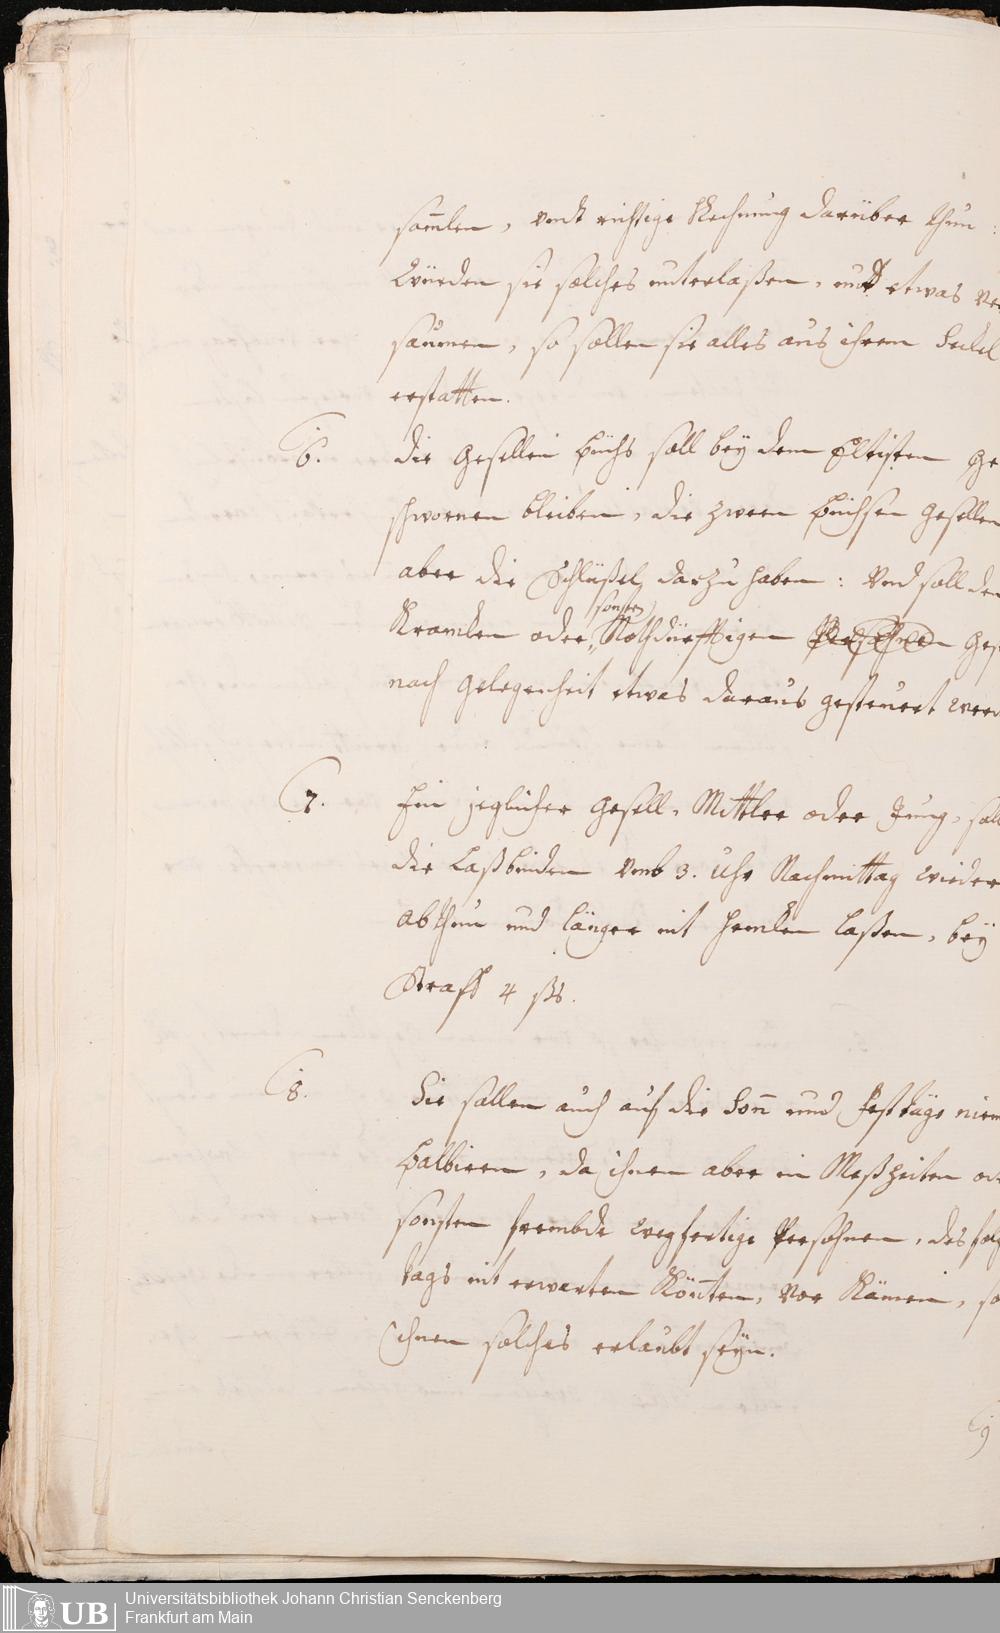 sam̄len, vndt richtige Rechnung darüber thun :
Würden sie solches unterlaßen, und etwas ver
säumen, so sollen sie alles aus ihrem Seckel
erstatten.
6. die Gesellen büchs soll bey dem Eltisten Ge
schwornen bleiben, die zween büchsen Gesellen
aber die Schlüßel darzu haben : Vnd soll den
sonsten
Krancken oder Nothdürfftigen Persohnen Ges
nach gelegenheit etwas daraus gesteuert werd
7. Ein jeglicher Gesell, Mittler oder Jung, soll
die Laßbinden vmb 3. Uhr Nachmittag wieder
abthun und länger nit hencken laßen, bey
Straff 4 ßs.
8. Sie sollen auch auf die Son̄ und Festtäge niem
balbieren, da ihnen aber in Meßzeiten od
sonsten frembde wegfertige Persohnen, des folg
tags nit erwarten kön̄ten, vor kämen, so
ihnen solches erlaubt seyn.
9
Universitätsbibliothek Johann Christian Senckenberg
Frankfurt am Main
UB